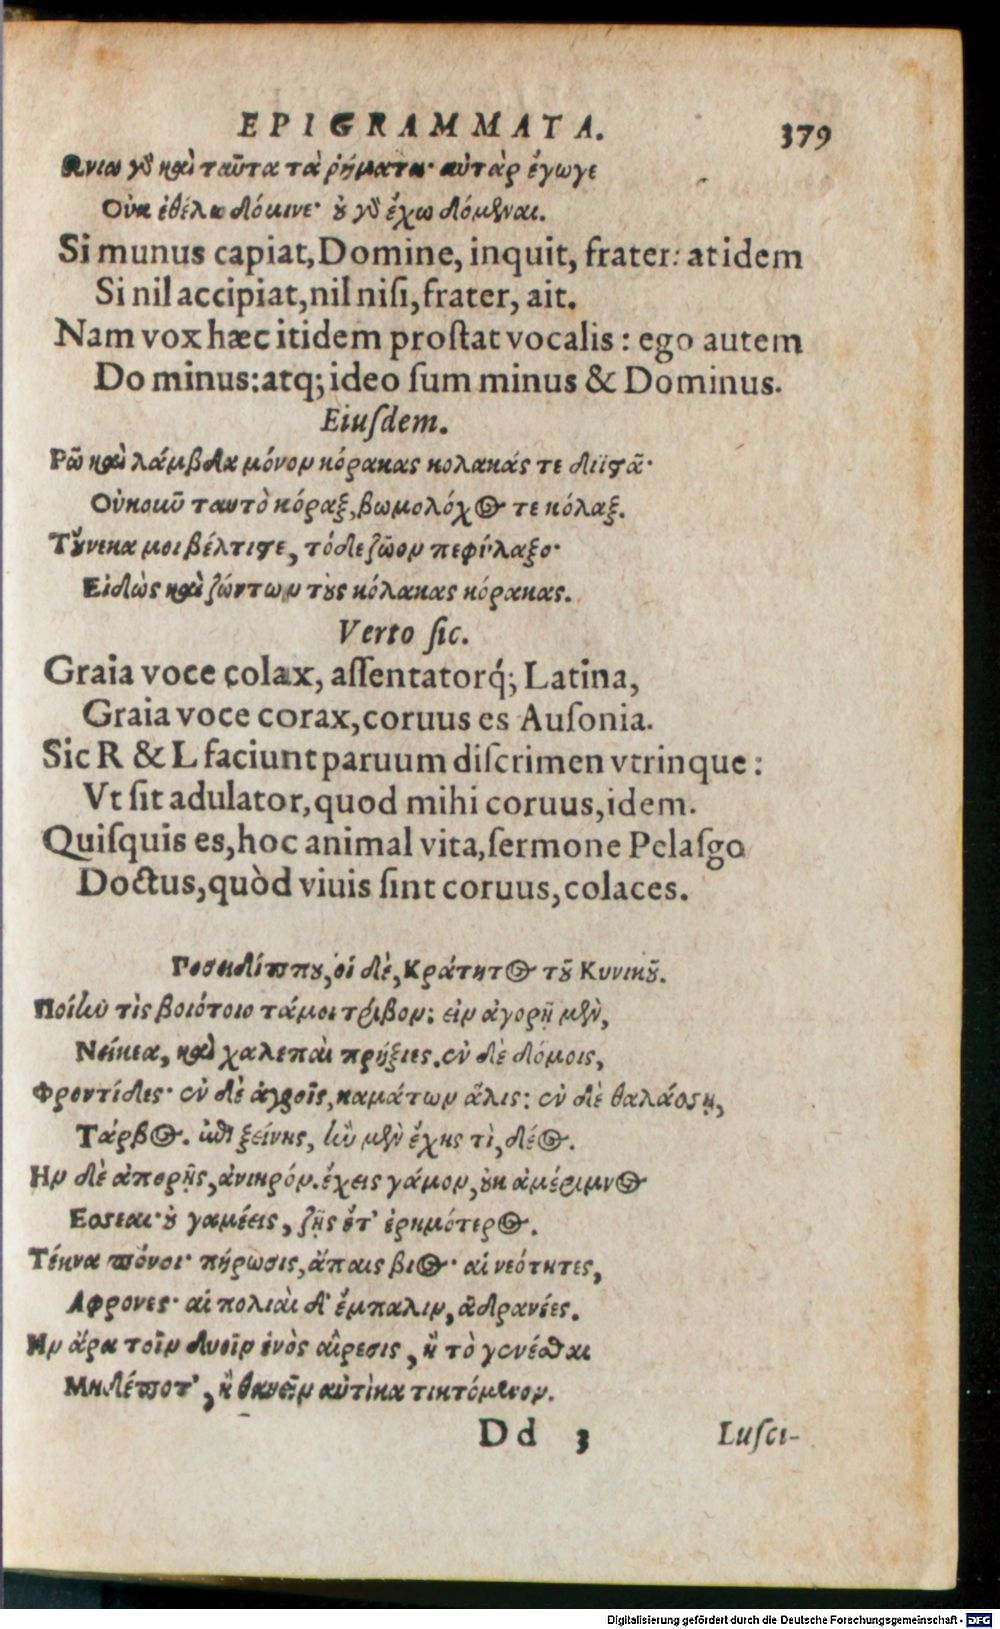 EPIGRAMMATA. 379
Ωνια γὸ καὶ ταῦτα τὰ ῥήματα· αὐτὰρ ἔγωγε
Οὐκ ἐθέλω δόμινε· ȣ γὸ ἔχω δόμεναι.
Si munus capiat, Domine, inquit, frater: at idem
Si nil accipiat, nil nisi, frater, ait.
Nam vox hæc itidem proſtat vocalis: ego autem
Do minus: atq; ideo ſum minus & Dominus.
Eiuſdem.
Ρῶ καὶ λάμβδα μόνον κόρακας κολακάς τε διϊστᾶ·
Οὐκοιῦ ταυτὸ κόραξ, βωμολόχος τε κόλαξ.
Τȣ́νεκα μοι βέλτιστε, τόδε ζῶον πεφύλαξο·
Εἰδὼς καὶ ζώντων τȣ̀ς κόλακας κόρακας.
Verto ſic.
Graia voce colax, aſſentatorq́; Latina,
Graia voce corax, coruus es Auſonia.
Sic R & L faciunt paruum diſcrimen vtrinque:
Vt ſit adulator, quod mihi coruus, idem.
Quiſquis es, hoc animal vita, ſermone Pelaſgo
Doctus, quòd viuis ſint coruus, colaces.
Ποσειδίππȣ, οἱ δὲ, Κράτητος τȣ͂ Κυνικȣ͂.
Ποίην τὶς βιότοιο τάμοι τρίβον; εἰν ἀγορῇ μὲν,
Νείκεα, καὶ χαλεπαὶ πρήξιες. ἐν δὲ δόμοις,
Φροντίδες· ἐν δὲ ἀγροῖς, καμάτων ἅλις: ἐν δὲ θαλάσσῃ,
Τάρβος. ἐπὶ ξείνης, ἢν μὲν ἔχης τὶ, δέος.
Ην δὲ ἀπορῇς, ἀνιηρόν. ἔχεις γάμον, ȣκ ἀμέριμνος
Εσσεαι· ȣ̓ γαμέεις, ζῇς ἔτ' ἐρημότερος.
Τέκνα πόνοι· πήρωσις, ἄπαις βίος· αἱ νεότητες,
Αφρονες· αἱ πολιαὶ δ' ἔμπαλιν, ἀδρανέες.
Ην ἄρα τοῖν δυοῖν ἑνὸς αἵρεσις, ἢ τὸ γενέσθαι
Μηδέποτ', ἢ θανεῖν αὐτίκα τικτόμενον.
Dd 3 Luſci-
Digitalisierung gefördert durch die Deutsche Forschungsgemeinschaft - DFG